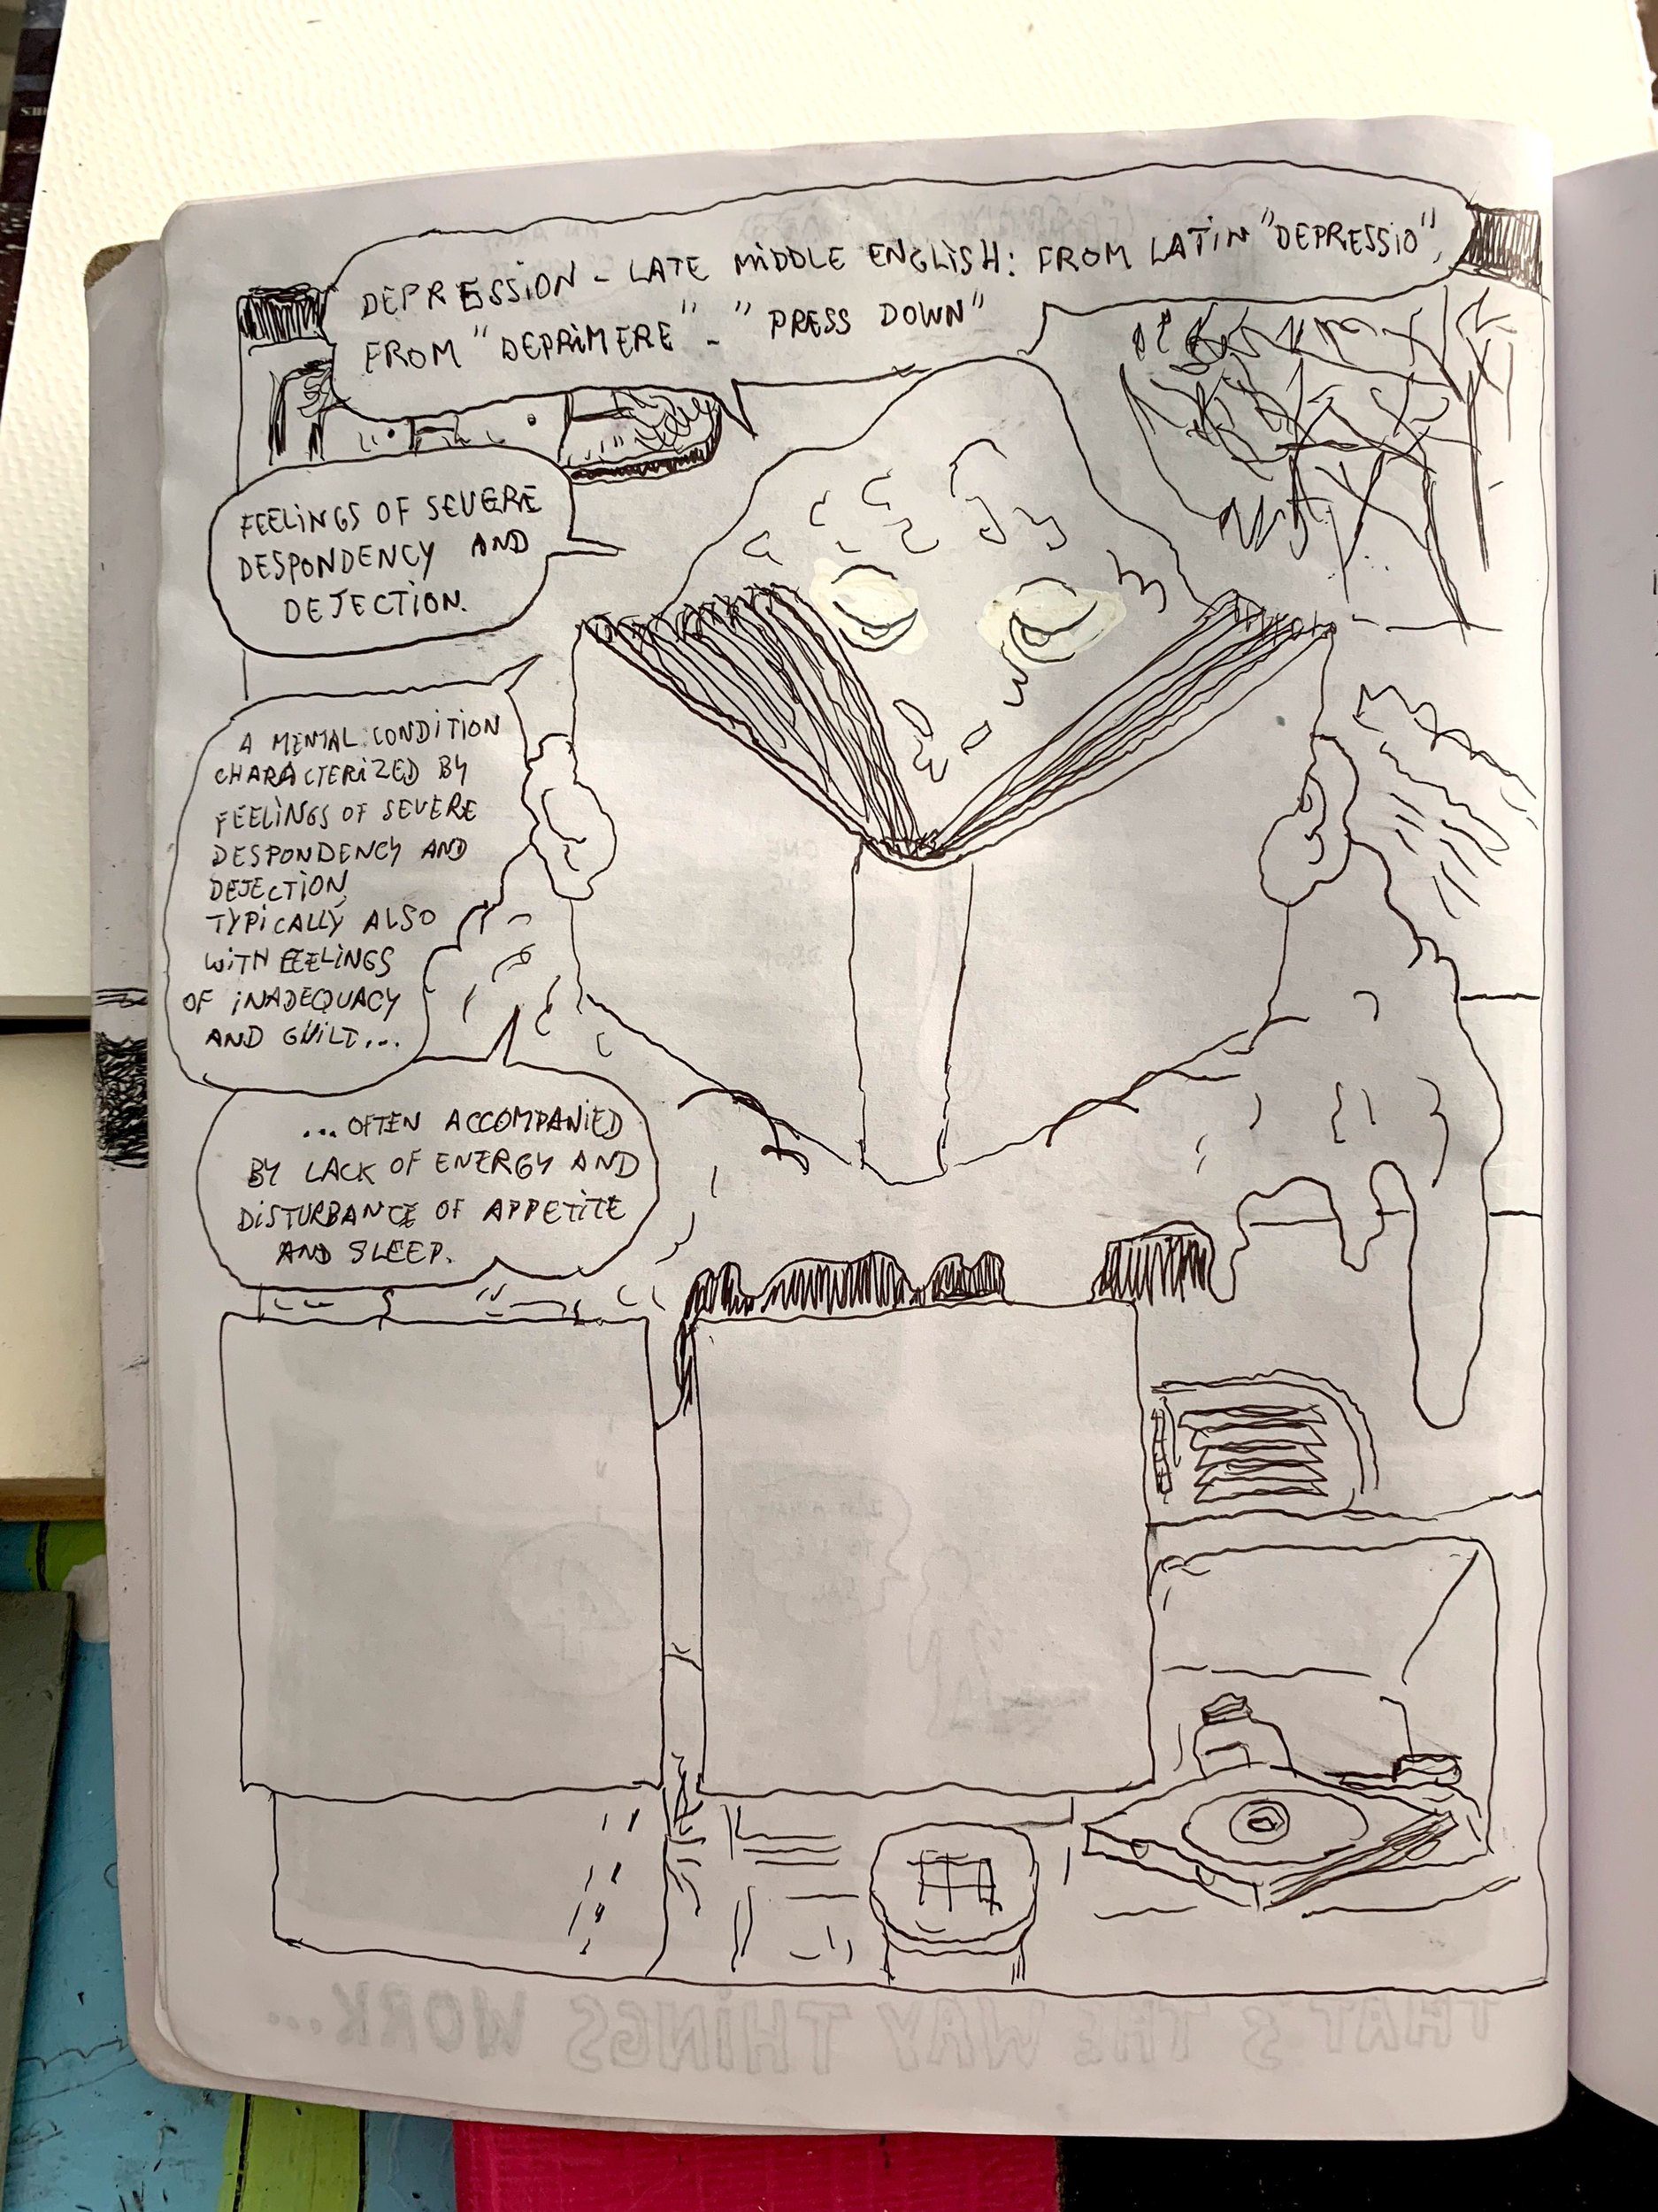 DEPRESSION - LATE MIDDLE ENGLISH: FROM LATIN "DEPRESSIO",
FROM "DEPRIMERE" - "PRESS DOWN"
FEELINGS OF SEVERE
DESPONDENCY AND
DEJECTION.
A MENTAL CONDITION
CHARACTERIZED BY
FEELINGS OF SEVERE
DESPONDENCY AND
DEJECTION,
TYPICALLY ALSO
WITH FEELINGS
OF INADEQUACY
AND GUILT...
...OFTEN ACCOMPANIED
BY LACK OF ENERGY AND
DISTURBANCE OF APPETITE
AND SLEEP.
THAT'S THE WAY THINGS WORK...